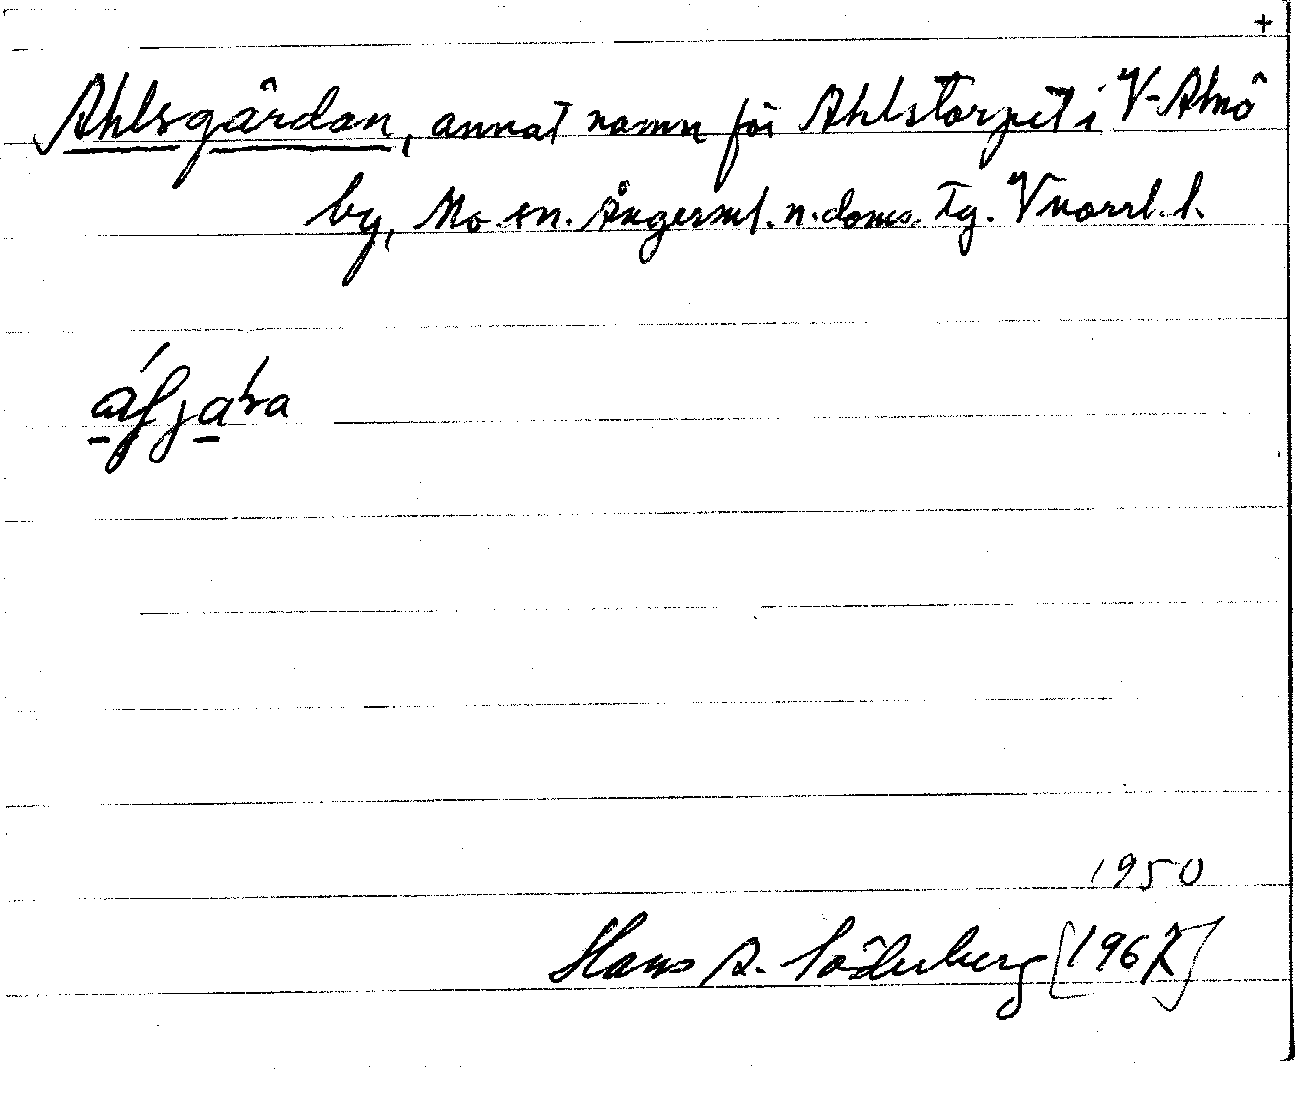 +
Ahlsgårdan, annat namn för Ahlstorpet i V-Alnö
by, Mo sn. Ångerml. n. doms. tg. Vnorrl. l.
1950
Hans A. Söderberg [1967]